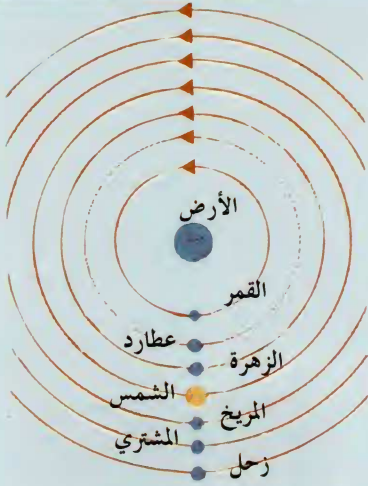 الأرض
القمر
عطارد
الزهرة
الشمس
المريخ
المشتري
زحل